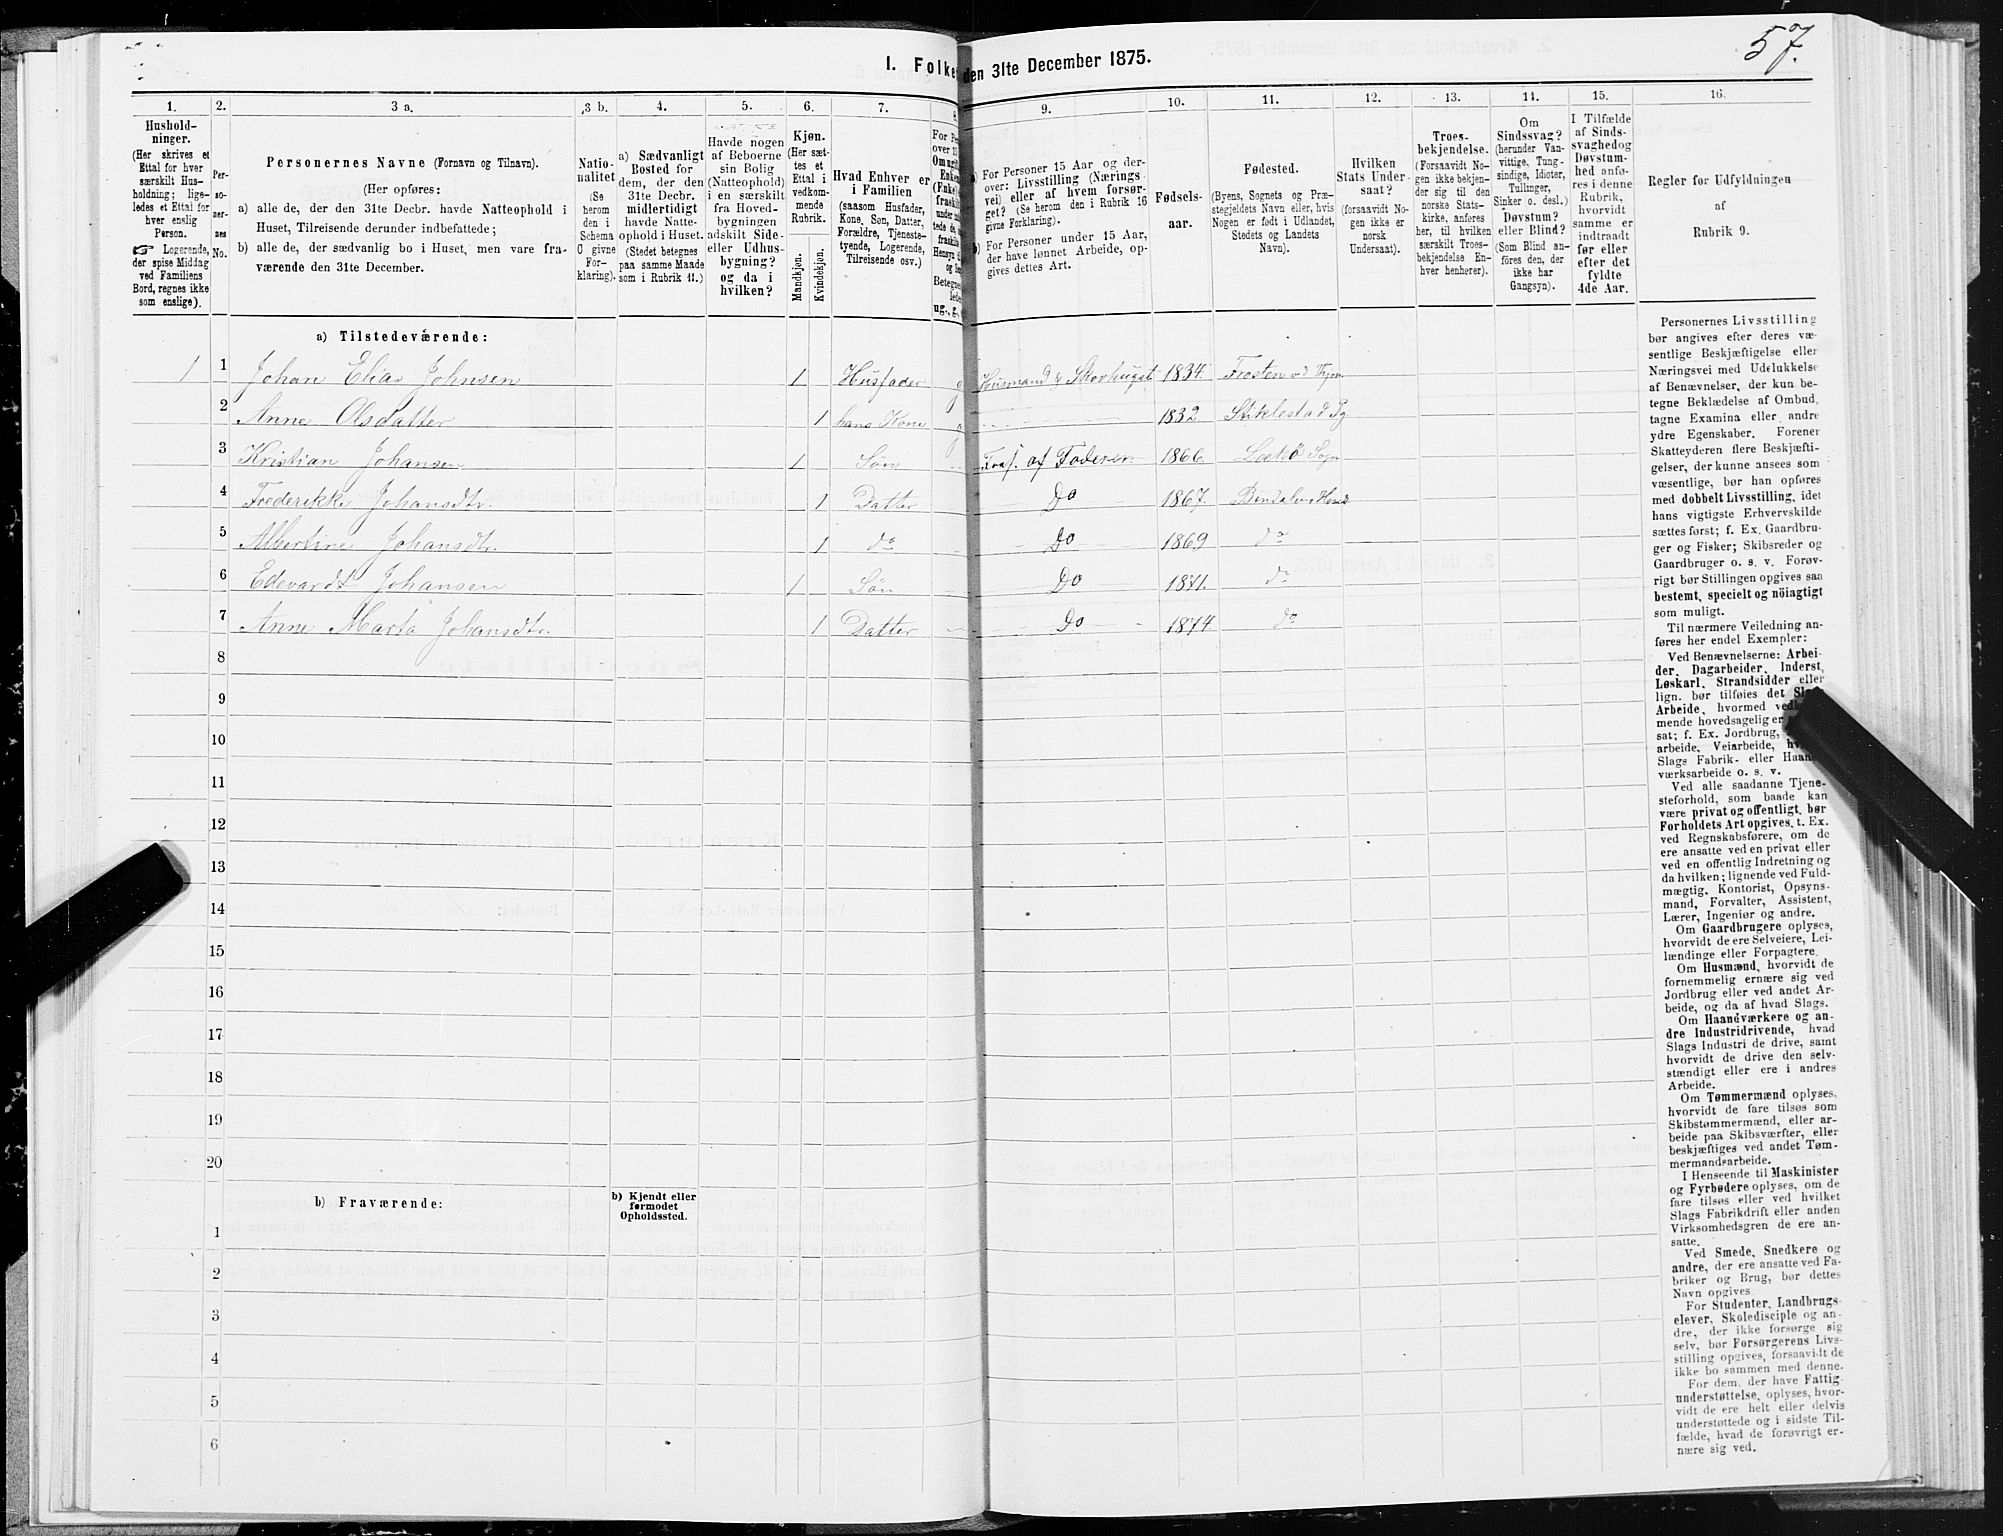 57.
I. Folke den 31te December 1875.
1. 2. 3 a. 3 b. 4. 5. 6. 7. 8. 9. 10. 11. 12. 13. 14. 15. 16.
Hushold-
ninger.
(Her skrives et
Ettal for hver
særskilt Hus-
holdning; lige-
ledes et Ettal for
hver enslig
Person.
☞ Logerende,
der spise Middag
ved Familiens
Bord, regnes ikke
som enslige).
Per-
so-
ner-
nes
No.
Personernes Navne (Fornavn og Tilnavn).
(Her opføres:
a) alle de, der den 31te Decbr. havde Natteophold i
Huset, Tilreisende derunder indbefattede;
b) alle de, der sædvanlig bo i Huset, men vare fra-
værende den 31te December.
Natio-
nalitet
(Se
herom
den i
Schema
O givne
For-
klaring).
a) Sædvanligt
Bosted for
dem, der den
31te Decbr.
midlertidigt
havde Natte-
ophold i Huset.
(Stedet betegnes
paa samme Maade
som i Rubrik 11.)
Havde nogen
af Beboerne
sin Bolig
(Natteophold)
i en særskilt
fra Hoved-
bygningen
adskilt Side-
eller Udhus-
bygning?
og da i
hvilken?
Kjøn.
(Her sæt-
tes et
Ettal i
vedkom-
mende
Rubrik.
Mandkjøn.
Kvindekjøn.
Hvad Enhver er
i Familien
(saasom Husfader,
Kone, Søn, Datter,
Forældre, Tjeneste-
tyende, Logerende,
Tilreisende osv.)
a) For Personer 15 Aar og der-
over: Livsstilling (Nærings-
vei) eller af hvem forsør-
get? (Se herom den i Rubrik 16
givne Forklaring).
b) For Personer under 15 Aar,
der have lønnet Arbeide, op-
gives dettes Art.
Fødsels-
aar.
Fødested.
(Byens, Sognets og Præ-
stegjeldets Navn eller, hvis
Nogen er født i Udlandet,
Stedets og Landets
Navn).
Hvilken
Stats Under-
saat?
(forsaavidt No-
gen ikke er
norsk
Undersaat).
Troes-
bekjendelse.
(Forsaavidt No-
gen ikke bekjen-
der sig til den
norske Stats-
kirke, anføres
her, til hvilken
særskilt Troes-
bekjendelse En-
hver henhører).
Om
Sindssvag?
(herunder Van-
vittige, Tung-
sindige, Idioter,
Tullinger,
Sinker o. desl.)
Døvstum?
eller Blind?
(Som Blind an-
føres den, der
ikke har
Gangsyn).
I Tilfælde
af Sinds-
svaghed og
Døvstum-
hed anfø-
res i denne
Rubrik,
hvorvidt
samme er
indtraadt
før eller
efter det
fyldte
4de Aar.
Regler for Udfyldningen
af
Rubrik 9.
a) Tilstedeværende:
1 1 Johan Elias Johnsen 1 Husfader g Husmand & 1834. Frosten
2 Anne Olsdatter 1 hans Kone g 1832 Stiklestad Pg
3 Kristian Johansen 1 Søn Fors. af Faderen 1866. Sogn
4 Frederikke Johansdtr. 1 Datter Do 1867. Bindalen
5 Albertine Johansdtr. 1 do Do 1869 do
6 Edevardt Johansen 1 Søn Do 1871. do
7 Anne Marta Johansdtr. 1 Datter Do 1874 do
8
9
10
11
12
13
14
15
16
17
18
19
20
b) Fraværende:
b) Kjendt eller
formodet
Opholdssted.
1
2
3
4
5
6
Personernes Livsstilling
bør angives efter deres væ-
sentlige Beskjæftigelse eller
Næringsvei med Udelukkelse
af Benævnelser, der kun be-
tegne Beklædelse af Ombud,
tagne Examina eller andre
ydre Egenskaber. Forener
Skatteyderen flere Beskjæfti-
gelser, der kunne ansees som
væsentlige, bør han opføres
med dobbelt Livsstilling, idet
hans vigtigste Erhvervskilde
sættes først; f. Ex. Gaardbru-
ger og Fisker; Skibsreder og
Gaardbruger o. s. v. Forøv-
rigt bør Stillingen opgives saa
bestemt, specielt og nöiagtigt
som muligt.
Til nærmere Veiledning an-
føres her endel Exempler:
Ved Benævnelserne: Arbei-
der, Dagarbeider, Inderst,
Løskarl, Strandsidder eller
lign. bør tilføies det
Arbeide, hvormed
mende hovedsagelig er
sat; f. Ex. Jordbrug,
arbeide, Veiarbeide,
Slags Fabrik- eller
værksarbeide o. s. v.
Ved alle saadanne Tjene-
steforhold, som baade kan
være privat og offentligt, bør
Forholdets Art opgives, t. Ex.
ved Regnskabsførere, om de
ere ansatte ved en privat eller
ved en offentlig Indretning og
da hvilken; lignende ved Fuld-
mægtig, Kontorist, Opsyns-
mand, Forvalter, Assistent,
Lærer, Ingeniør og andre.
Om Gaardbrugere oplyses,
hvorvidt de ere Selveiere, Lei-
lændinge eller Forpagtere.
Om Husmænd, hvorvidt de
fornemmelig ernære sig ved
Jordbrug eller ved andet Ar-
beide, og da af hvad Slags.
Om Haandværkere og an-
dre Industridrivende, hvad
Slags Industri de drive, samt
hvorvidt de drive den selv-
stændigt eller ere i andres
Arbeide.
Om Tømmermænd oplyses,
hvorvidt de fare tilsøs som
Skibstømmermænd, eller ar-
beide paa Skibsværfter, eller
beskjæftiges ved andet Tøm-
mermandsarbeide.
I Henseende til Maskinister
og Fyrbødere oplyses, om de
fare tilsøs eller ved hvilket
Slags Fabrikdrift eller anden
Virksomhedsgren de ere an-
satte.
Ved Smede, Snedkere og
andre, der ere ansatte ved Fa-
briker og Brug, bør dettes
Navn opgives.
For Studenter, Landbrugs-
elever, Skoledisciple og an-
dre, der ikke forsørge sig
selv, bør Forsørgerens Livs-
stilling opgives, forsaavidt de
ikke bo sammen med denne.
For dem, der have Fattig-
understøttelse, oplyses, hvor-
vidt de ere helt eller delvis
understøttede og i sidste Til-
fælde, hvad de forøvrigt er-
nære sig ved.